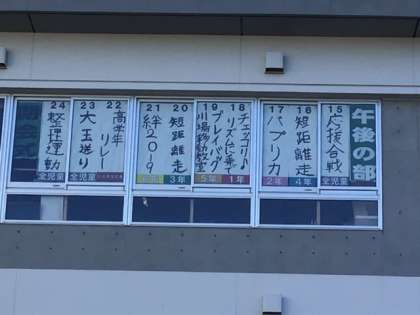 午後の部
15
応援合戦
全児童
16
短距離走
4年
17
パプリカ
2年
18
チェッコリ♪
リズムに乗って
1年
19
プレイバック
川場移動教室
5年
20
短距離走
3年
21
絆2019
22
高学年
リレー
23
大玉送り
全児童
24
整理運動
全児童